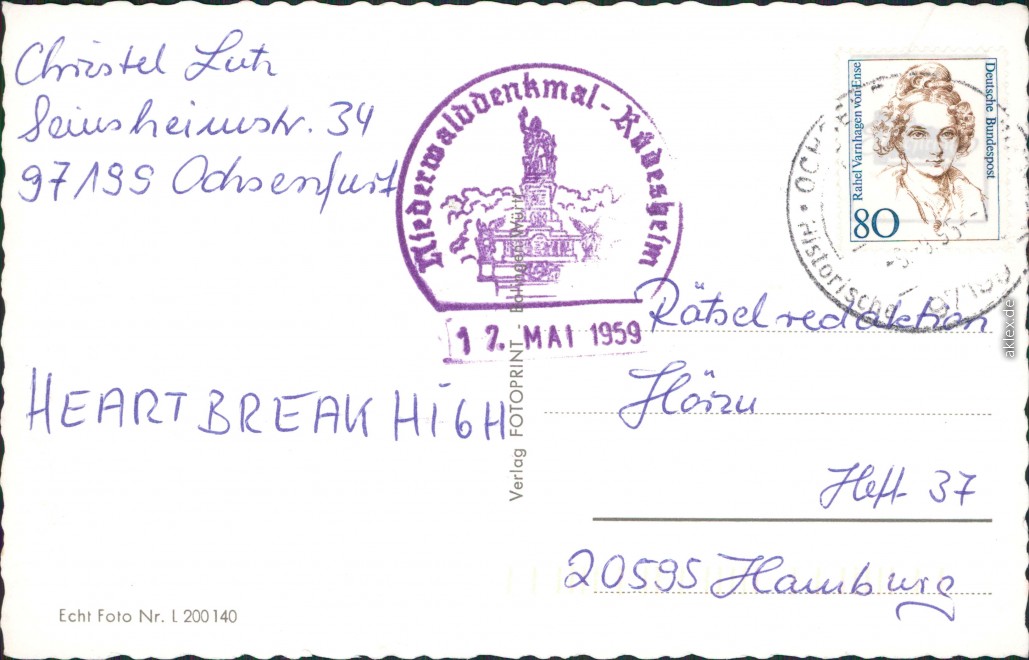 Christel Lutz
Seinsheimstr. 34
97199 Ochsenfurt
HEARTBREAK HIGH
Echt Foto Nr. L 200140
Niederwalddenkmal - Rüdesheim
17. MAI 1959
Verlag FOTOPRINT -
Rahel Varnhagen von Ense
Deutsche Bundespost
80
Historische
97199
Rätselredaktion
Hörzu
Heft 37
20595 Hamburg
aklex.de